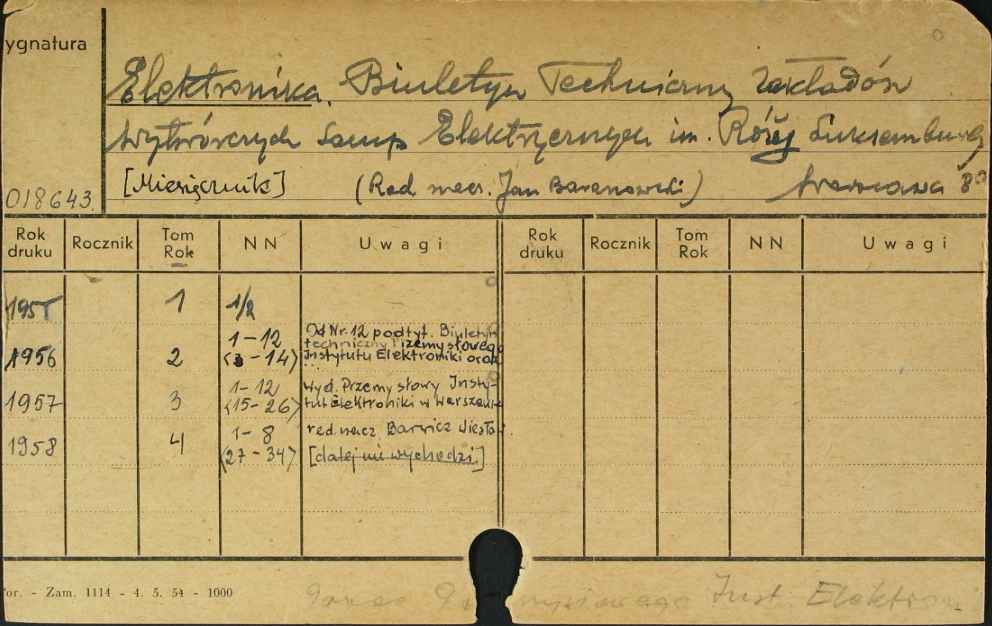 ygnatura
Elektronika. Biuletyn Techniczny Zakładów
Wytwórczych Lamp Elektrycznych im. Róży Luksemburg
[Miesięcznik] (Red. nacz. Jan Baranowski) Warszawa 8°
018643.
Rok druku Rocznik Tom Rok NN Uwagi Rok druku Rocznik Tom Rok NN Uwagi
1955 1 1/2
1956 2 1-12 (3-14) Od Nr. 12 podtyt. Biuletyn
techniczny Przemysłowego
Instytutu Elektroniki oraz
1957 3 1-12 (15-26) wyd. Przemysłowy Insty-
tut Elektroniki w Warszawie
1958 4 1-8 (27-34) red. nacz. Barwicz Wiesław.
[dalej nie wychodzi.]
or. - Zam. 1114 - 4. 5. 54 - 1000
Inst. Elektron